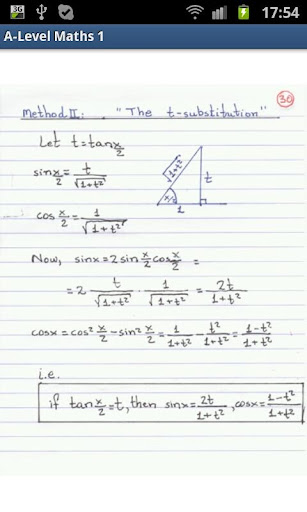 3G 17:54
A-Level Maths 1
30
Method II: "The t-substitution"
Let t=tan x/2
sin x/2 = t/√(1+t²)
cos x/2 = 1/√(1+t²)
√(1+t²) t x/2 1
Now, sinx=2sin x/2 cos x/2 =
=2 t/√(1+t²) · 1/√(1+t²) = 2t/(1+t²)
cosx=cos² x/2 - sin² x/2 = 1/(1+t²) - t²/(1+t²) = (1-t²)/(1+t²)
i.e.
if tan x/2 = t, then sinx = 2t/(1+t²), cosx = (1-t²)/(1+t²)